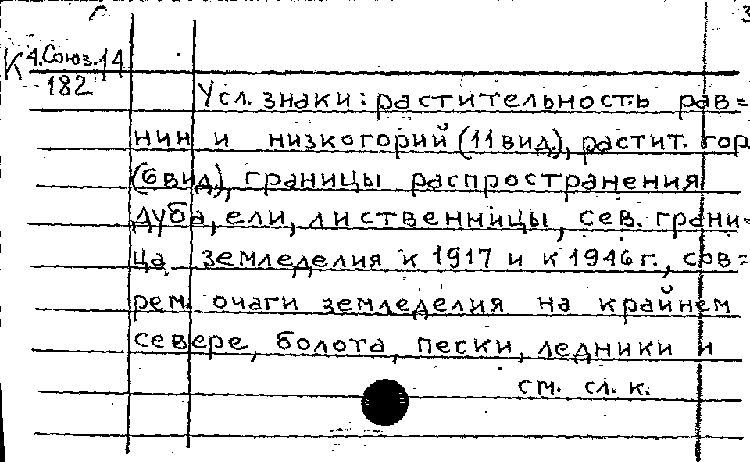 3
К 4.Союз.14
182
Усл. знаки: растительность рав=
нин и низкогорий (11вид), растит. гор
(6вид), границы распространения
дуба, ели, лиственницы, сев. грани-
ца земледелия к 1917 и к 1946г., сов=
рем. очаги земледелия на крайнем
севере, болота, пески, ледники и
см. сл. к.